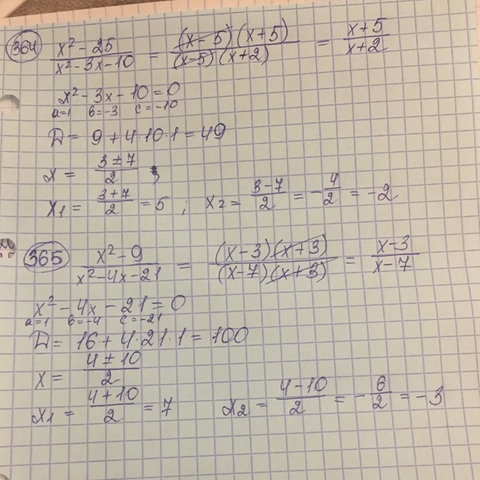 364 (x² - 25)/(x² - 3x - 10) = ((x - 5)(x + 5))/((x-5)(x+2)) = (x+5)/(x+2)
x² - 3x - 10 = 0
a=1 b=-3 c=-10
D = 9 + 4·10·1 = 49
x = (3 ± 7)/2
x1 = (3+7)/2 = 5 ; x2 = (3-7)/2 = -4/2 = -2
365 (x² - 9)/(x² - 4x - 21) = ((x-3)(x+3))/((x-7)(x+3)) = (x-3)/(x-7)
x² - 4x - 21 = 0
a=1 b=-4 c=-21
D = 16 + 4·21·1 = 100
x = (4 ± 10)/2
x1 = (4+10)/2 = 7 x2 = (4-10)/2 = -6/2 = -3